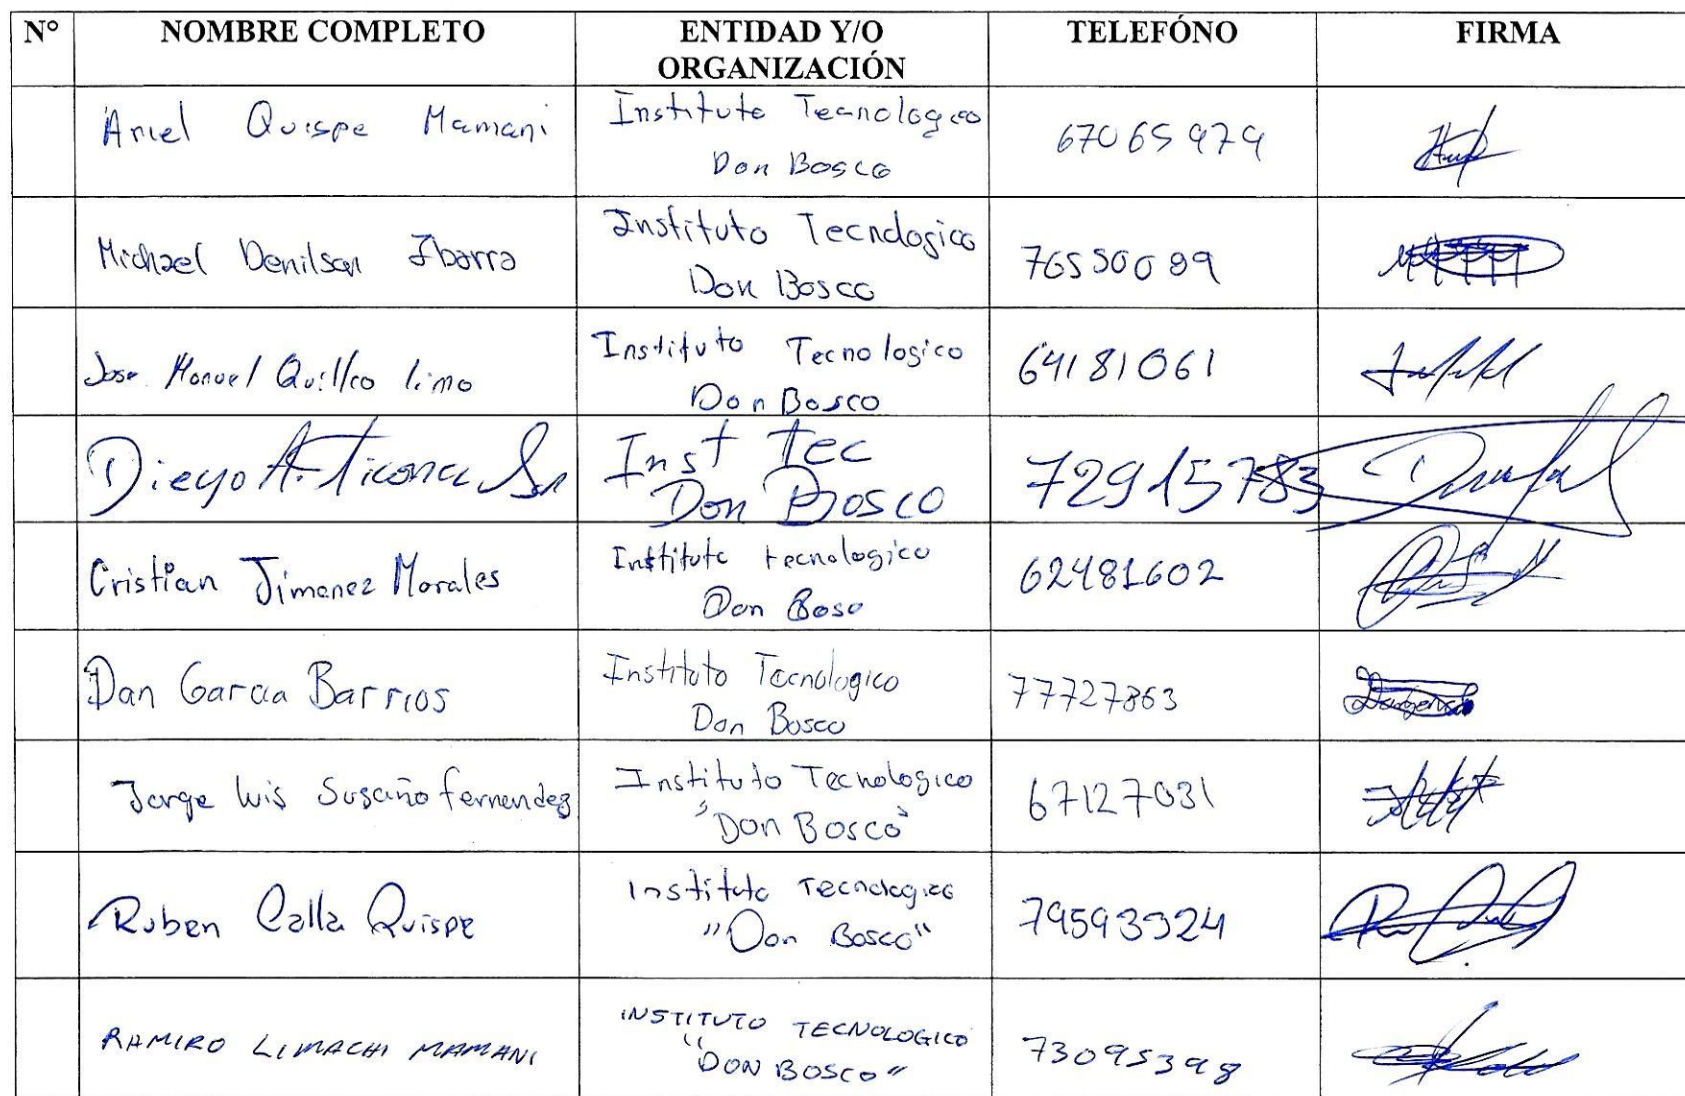 N° NOMBRE COMPLETO ENTIDAD Y/O ORGANIZACIÓN TELEFÓNO FIRMA
Ariel Quispe Mamani Instituto Tecnologico Don Bosco 67065979
Michael Denilson Ibarra Instituto Tecnologico Don Bosco 76550089
Jose Manuel Quillco limo Instituto Tecnologico Don Bosco 64181061
Diego A. Ticona Inst Tec Don Bosco 72915783
Cristian Jimenez Morales Instituto tecnologico Don Boso 62481602
Dan Garcia Barrios Instituto Tecnologico Don Bosco 77727863
Jorge luis Susaño fernendez Instituto Tecnologico "Don Bosco" 67127031
Ruben Calla Quispe Instituto Tecnologico "Don Bosco" 79593924
RAMIRO LIMACHI MAMANI INSTITUTO TECNOLOGICO "DON BOSCO" 73095398